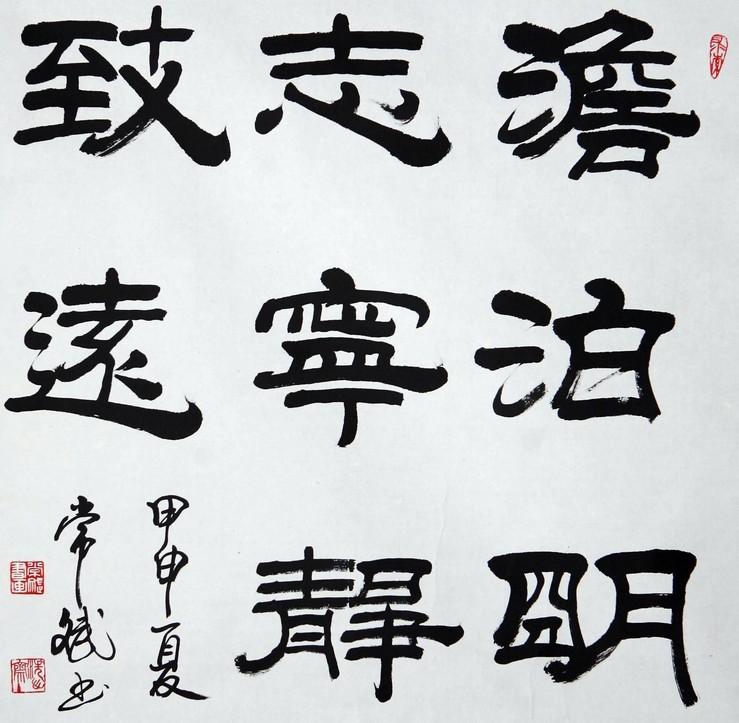 澹泊明
志寧靜
致遠
甲申夏
常斌书